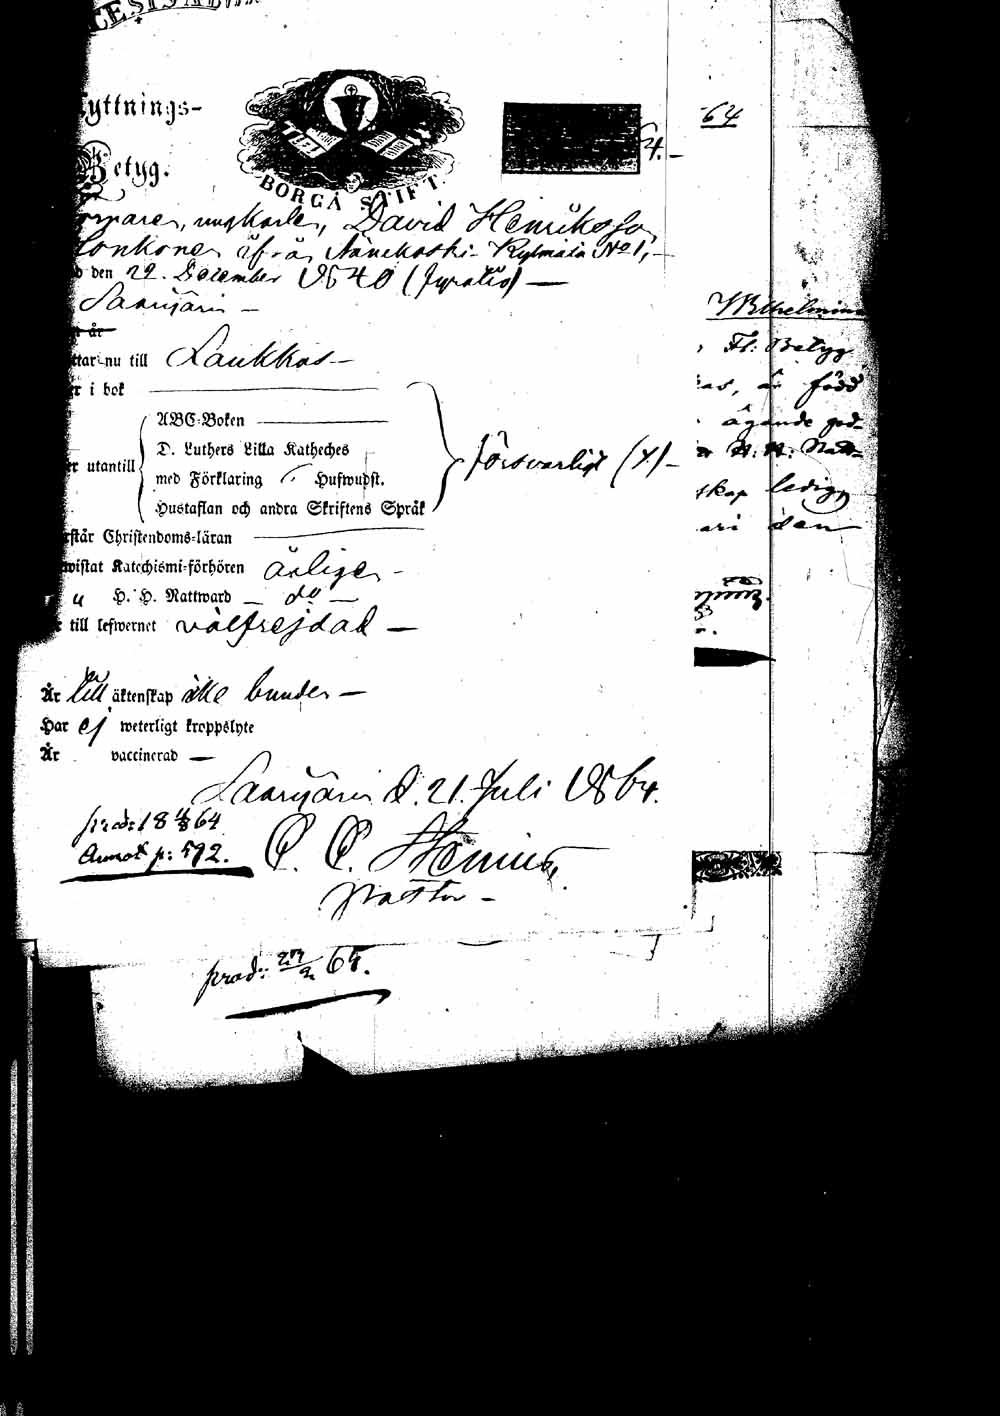 yttnings-
Betyg.
BORGÅ STIFT.
4.-
64
ungkarlen, David Henriksson
ifrån Äänekoski Kylmälä No 1,-
den 22. December 1840 (fyratio) —
Saarijärvi -
år
ttar nu till Laukkas -
r i bok
ABC-Boken
D. Luthers Lilla Katheches
med Förklaring Hufwupst.
Hustaflan och andra Skriftens Språk
er utantill
försvarligt (4)-
rstår Christendoms-läran
wistat Katechismi-förhören årligen -
H. H. Nattward - do -
till lefwernet välfrejdad -
Är till äktenskap icke bunden -
Har ej weterligt kroppslyte
Är vaccinerad -
Saarijärvi d. 21. Juli 1864.
prod: 18 4/8 64
Annot p: 592.
Pastor -
prod: 27/9 64.
Wilhelmina
Fl: Betyg
as, är född
ägande god-
H. H. Natt-
skap ledig,
den